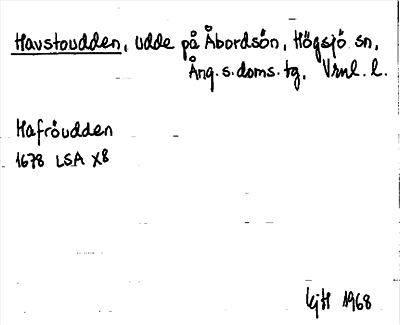 Havstoudden, udde på Åbordsön, Högsjö sn,
Ång. s. doms. tg, Vrnl. l.
Hafröudden
1678 LSA X8
KjH 1968